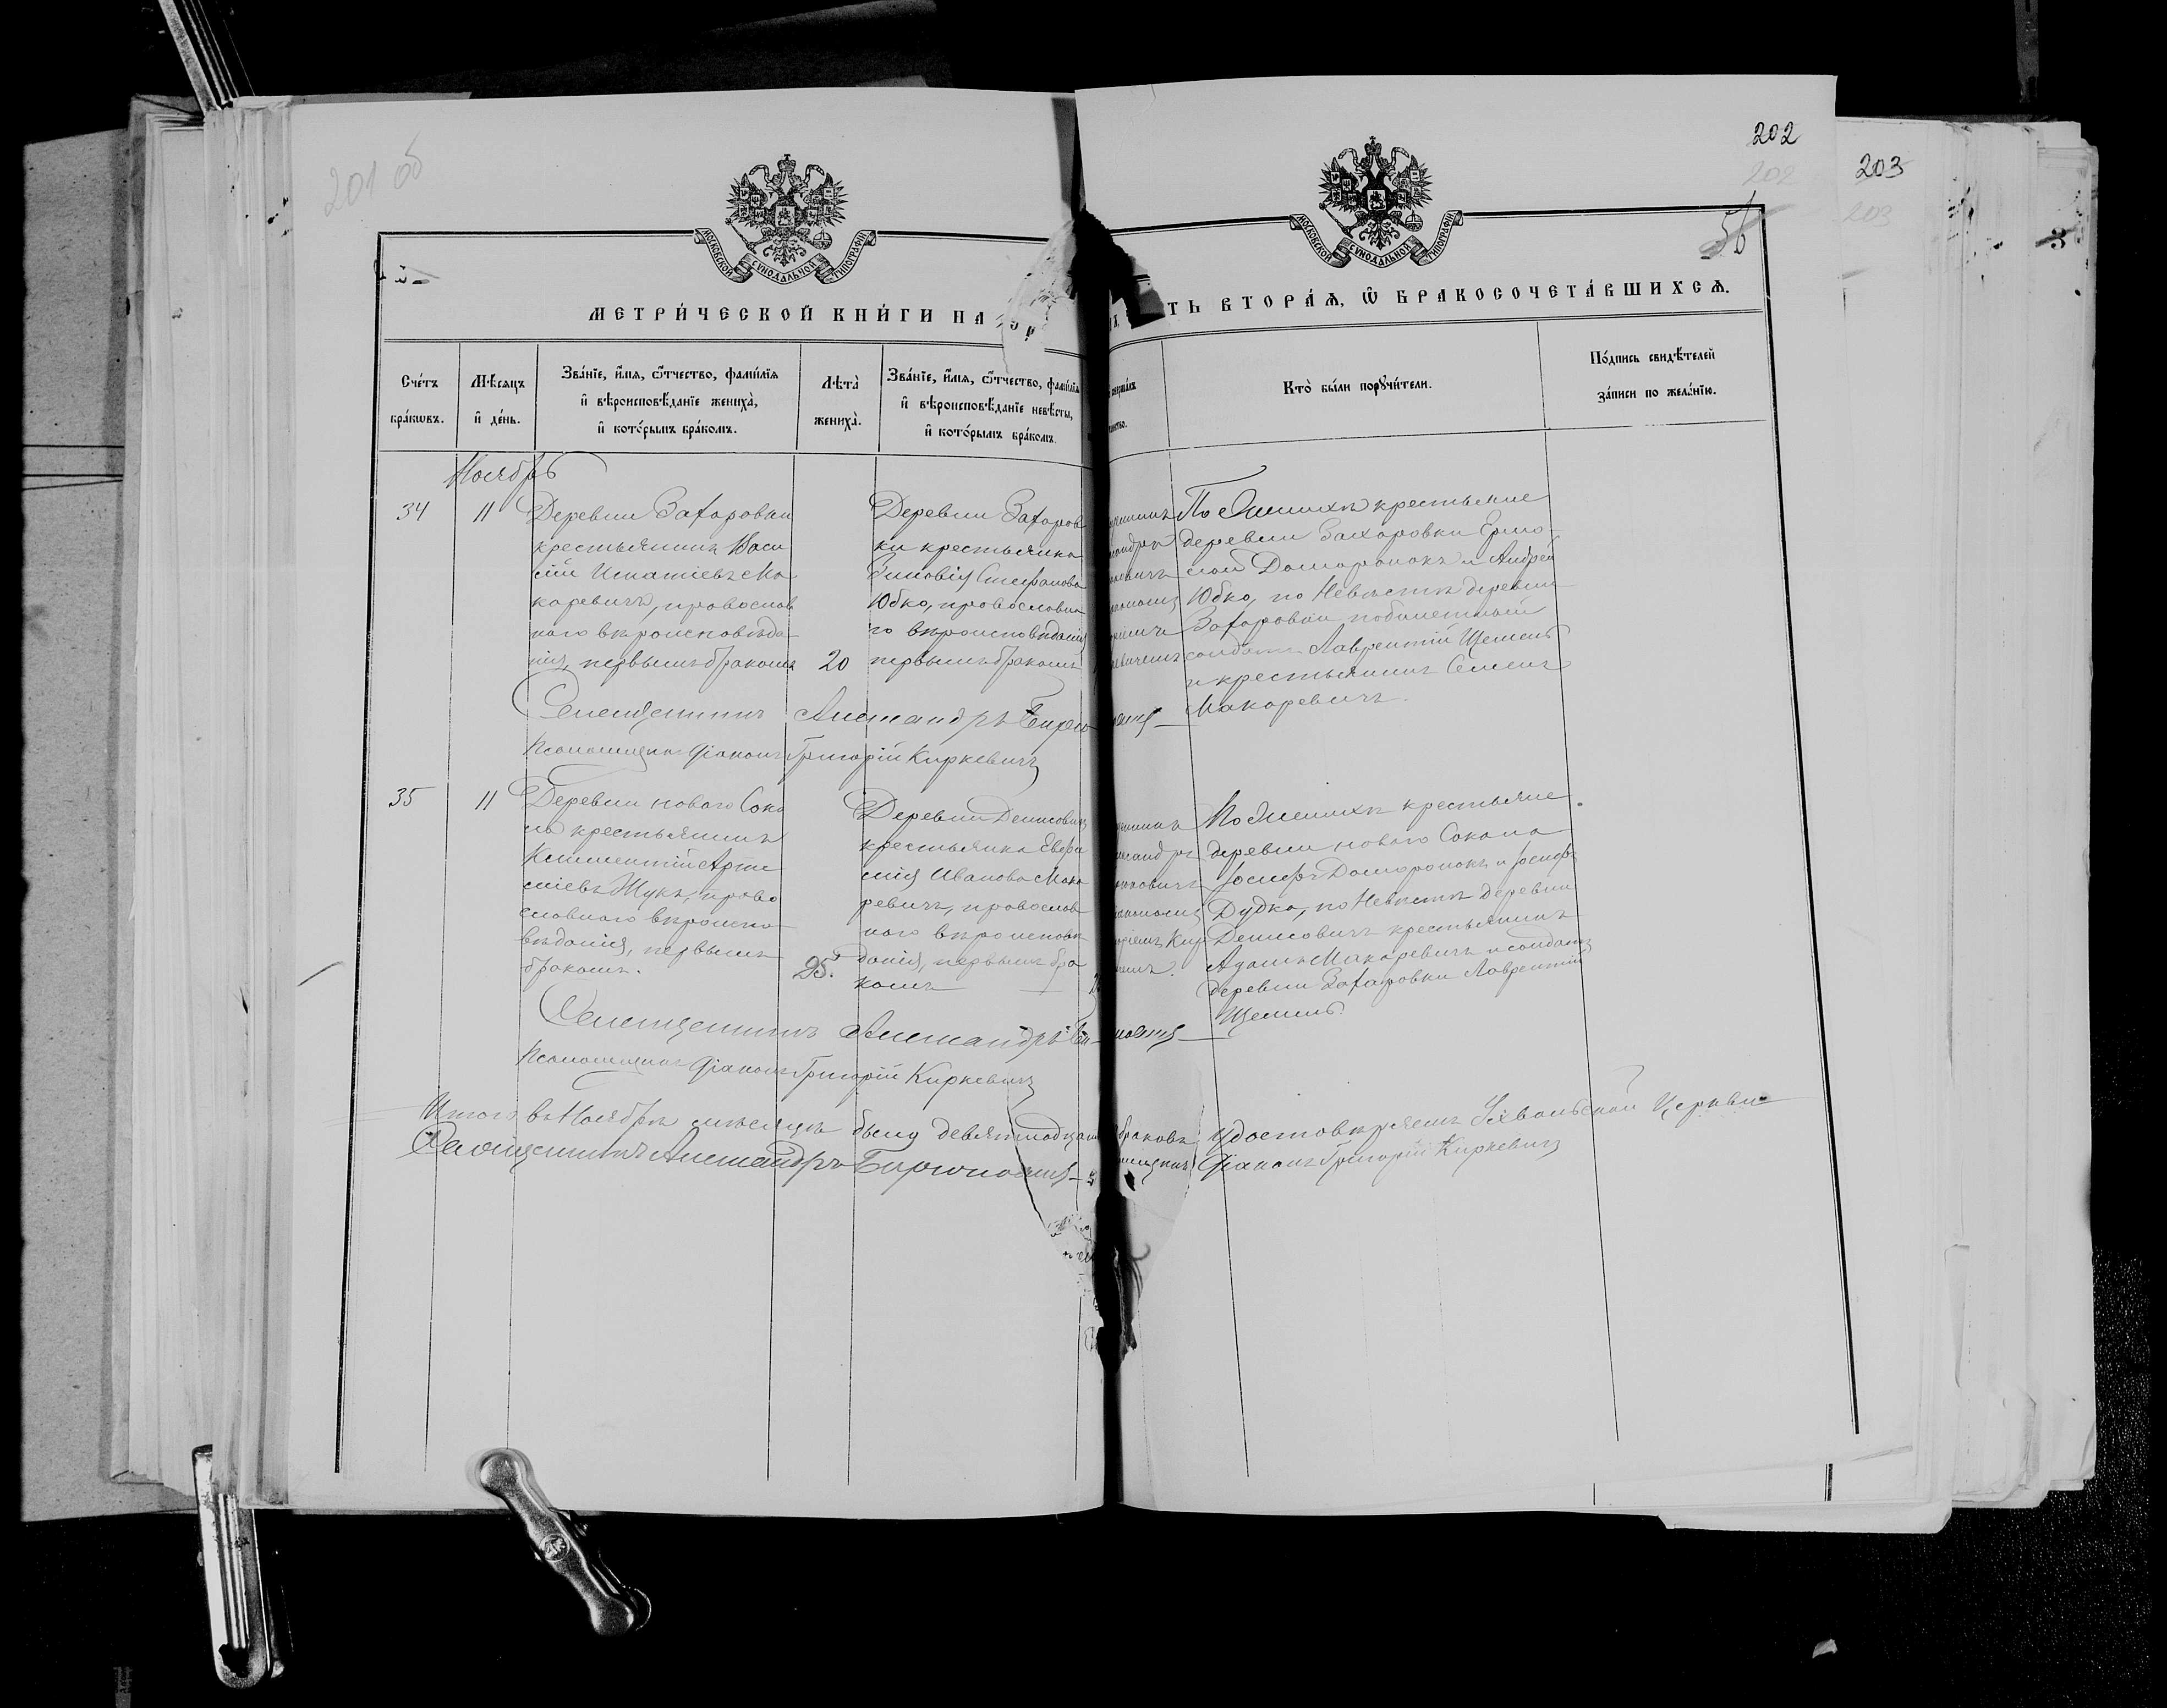 201 об
202
202
203
203
56
МОСКОВСКОЙ СѴНОДАЛЬНОЙ ТИПОГРАФІИ
МОСКОВСКОЙ СѴНОДАЛЬНОЙ ТИПОГРАФІИ
МЕТРИ́ЧЕСКОЙ КНИ́ГИ НА
ТЬ ВТОРА́Ѧ, Ѽ БРАКОСОЧЕТА́ВШИХСѦ.
Сче́тъ бра́кѡвъ.
Мѣ́сяцъ и҆ де́нь.
Зва́нїе, и҆́мя, ѻ҆́тчество, фами́лїя
и҆ вѣроисповѣ́данїе жениха̀,
и҆ кото́рымъ бра́комъ.
Лѣта̀ жениха̀.
Зва́нїе, и҆́мя, ѻ҆́тчество, фами́лїя
и҆ вѣроисповѣ́данїе невѣ́сты,
и҆ кото́рымъ бра́комъ.
Кто̀ бы́ли порꙋчи́тели.
По́дпись свидѣ́телей
за́писи по жела́нїю.
Ноябрь
34
11
Деревни Захаровки
крестьянинъ Васи
лій Игнатіевъ Ма
каревичъ, православ
наго вѣроисповѣда-
нія, первымъ бракомъ
20
Деревни Захаров
ки крестьянка
Зиновія Стефанова
Юбко, православна
го вѣроисповѣданія
первымъ бракомъ
По Женихѣ крестьяне
деревни Захаровки Ермо-
лай Доморонокъ и Андрей
Юбко, по Невѣстѣ деревни
Захаровки побилетный
солдатъ Лаврентій Щемель
и крестьянинъ Семенъ
Макаревичъ.
Священникъ Александръ
Псаломщикъ Діаконъ Григорій Киркевичъ
35
11
Деревни новаго Соко
ла крестьянинъ
Климентій Арте
міевъ Жукъ, право
славнаго вѣроиспо-
вѣданія, первымъ
бракомъ.
25.
Деревни Денисовичъ
крестьянка Евфи
мія Иванова Мака
ревичъ, православ
наго вѣроисповѣ
данія, первымъ бра
комъ
По Женихѣ крестьяне
деревни новаго Сокола
Іосифъ Доморонокъ и Іосифъ
Дудка, по Невѣстѣ деревни
Денисовичъ крестьянинъ
Адамъ Макаревичъ и солдатъ
деревни Захаровки Лаврентій
Щемель
Священникъ Александръ
Псаломщикъ Діаконъ Григорій Киркевичъ
Итого въ Ноябрѣ мѣсяцѣ было девятнадцать браковъ удостовѣряемъ Ухвальской Церкви
Священникъ Александръ Діаконъ Григорій Киркевичъ